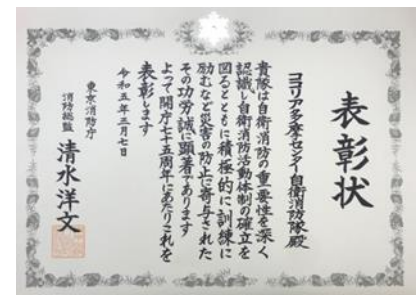 表彰状
ココリア多摩センター自衛消防隊殿
貴隊は自衛消防の重要性を深く
認識し自衛消防活動体制の確立を
図るとともに積極的に訓練に
励むなど災害の防止に寄与された
その功労誠に顕著であります
よって開庁七十五周年にあたりこれを
表彰します
令和五年三月七日
東京消防庁
消防総監 清水洋文